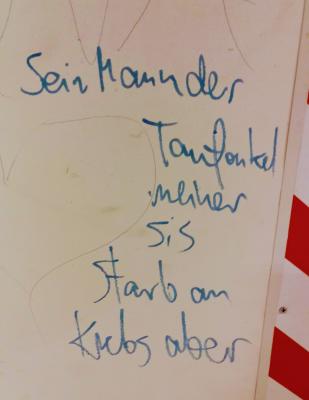 Sein Mann der
Taufonkel
meiner
Sis
starb an
Krebs aber